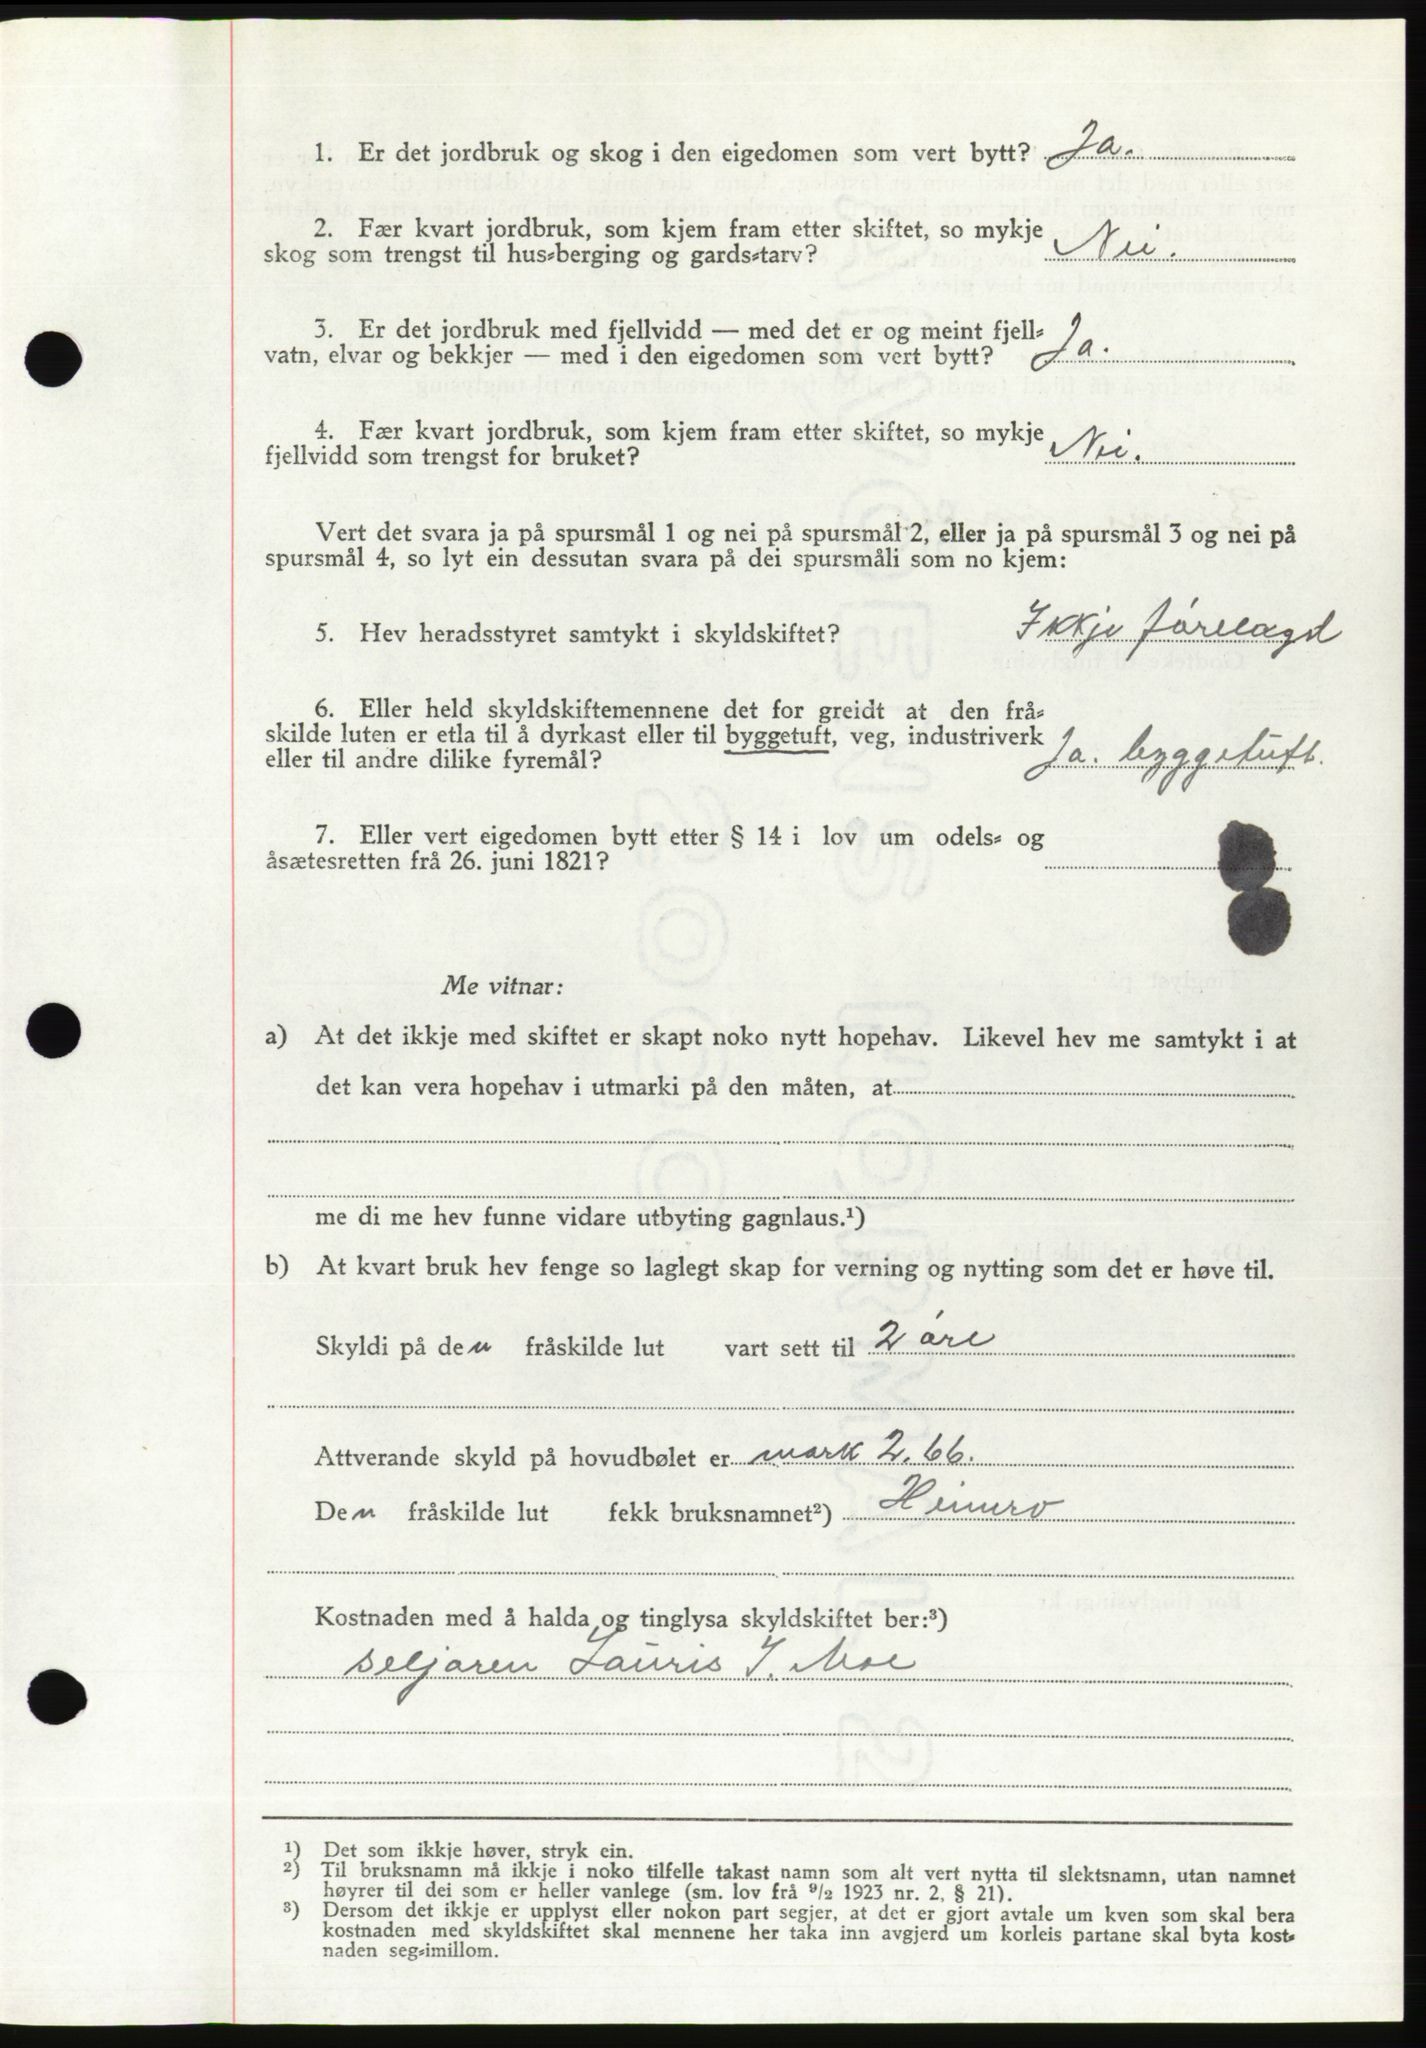 1. Er det jordbruk og skog i den eigedomen som vert bytt? Ja.
2. Fær kvart jordbruk, som kjem fram etter skiftet, so mykje
skog som trengst til hus⸗berging og gards⸗tarv? Nei.
3. Er det jordbruk med fjellvidd — med det er og meint fjell⸗
vatn, elvar og bekkjer — med i den eigedomen som vert bytt? Ja.
4. Fær kvart jordbruk, som kjem fram etter skiftet, so mykje
fjellvidd som trengst for bruket? Nei.
Vert det svara ja på spursmål 1 og nei på spursmål 2, eller ja på spursmål 3 og nei på
spursmål 4, so lyt ein dessutan svara på dei spursmåli som no kjem:
5. Hev heradsstyret samtykt i skyldskiftet? Ikkje förelagd
6. Eller held skyldskiftemennene det for greidt at den frå⸗
skilde luten er etla til å dyrkast eller til byggetuft, veg, industriverk
eller til andre dilike fyremål? Ja. byggetuft.
7. Eller vert eigedomen bytt etter § 14 i lov um odels⸗ og
åsætesretten frå 26. juni 1821?
Me vitnar:
a) At det ikkje med skiftet er skapt noko nytt hopehav. Likevel hev me samtykt i at
det kan vera hopehav i utmarki på den måten, at
me di me hev funne vidare utbyting gagnlaus.¹)
b) At kvart bruk hev fenge so laglegt skap for verning og nytting som det er høve til.
Skyldi på den fråskilde lut vart sett til 2 öre
Attverande skyld på hovudbølet er mark 2.66.
Den fråskilde lut fekk bruksnamnet²) Heimro
Kostnaden med å halda og tinglysa skyldskiftet ber:³)
seljaren Lauris I. Moe
¹) Det som ikkje høver, stryk ein.
²) Til bruksnamn må ikkje i noko tilfelle takast namn som alt vert nytta til slektsnamn, utan namnet
høyrer til dei som er heller vanlege (sm. lov frå 9/2 1923 nr. 2, § 21).
³) Dersom det ikkje er upplyst eller nokon part segjer, at det er gjort avtale um kven som skal bera
kostnaden med skyldskiftet skal mennene her taka inn avgjerd um korleis partane skal byta kost⸗
naden seg⸗imillom.